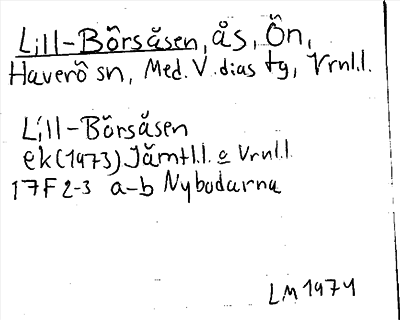 Lill-Börsåsen, ås, Ön,
Haverö sn, Med. V. dias tg, Vrnl.l.
Lill-Börsåsen
ek (1973) Jämtl.l. o Vrnl.l
17F 2-3 a-b Nybodarna
LM 1974